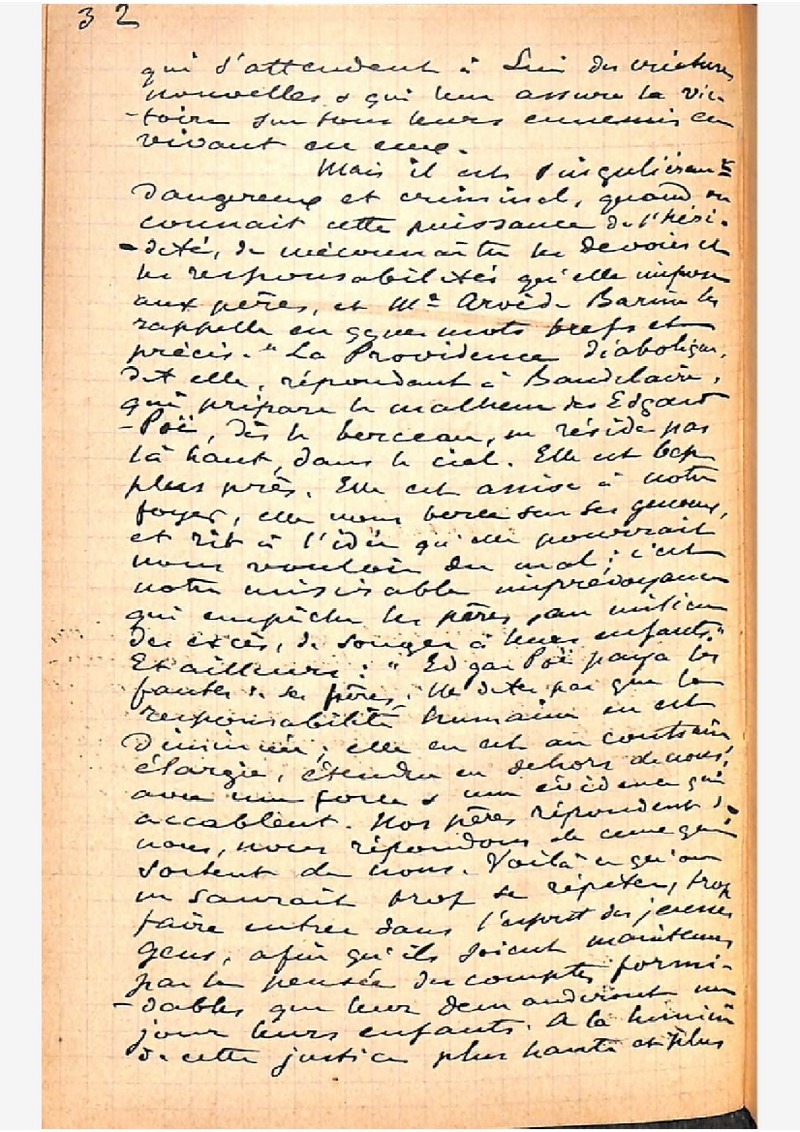 32
qui s'attendent à Lui des créatures
nouvelles & qui leur assure la vic-
-toire sur tous leurs ennemis en
vivant en eux.
Mais il est singulièremt
dangereux et criminel, quand on
connait cette puissance de l'héré-
-dité, de méconnaître les devoirs et
les responsabilités qu'elle impose
aux pères, et Me Arvède Barine les
rappelle en qques mots brefs et
précis. "La Providence diabolique,
dit elle, répondant à Baudelaire,
qui prépare le malheur des Edgard
-Poë, dès le berceau, ne réside pas
là haut, dans le ciel. Elle est bcp
plus près. Elle est assise à notre
foyer, elle nous berce sur ses genoux,
et rit à l'idée qu'elle pourrait
nous vouloir du mal; c'est
notre misérable imprévoyance
qui empêche les pères, au milieu
des excès, de songer à leurs enfants."
Et ailleurs: "Edgar Poë paya les
fautes de ses pères. Ne dites pas que la
responsabilité humaine en est
diminuée; elle en est au contraire
élargie, étendue en dehors de nous,
avec une force & une évidence qui
accablent. Nos pères répondent de
nous, nous répondons de ceux qui
sortent de nous. Voilà ce qu'on
ne saurait trop se répéter, trop
faire entrer dans l'esprit des jeunes
gens, afin qu'ils soient maintenus
par la pensée des comptes formi-
-dables que leur demanderont un
jour leurs enfants. A la lumière
de cette justice plus haute et plus